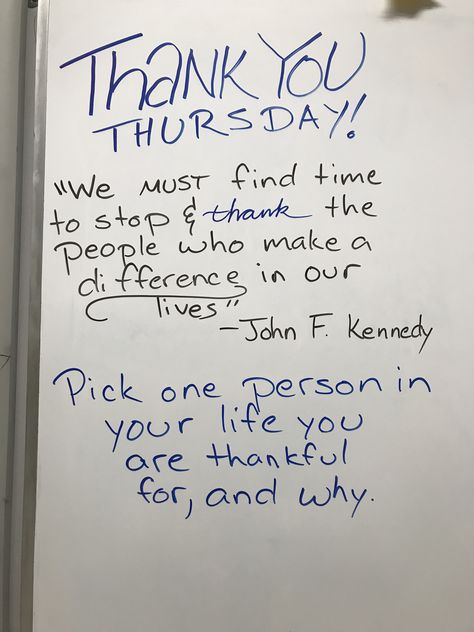 THANK YOU
THURSDAY!
"We MUST find time
to stop & thank the
people who make a
difference in our
lives"
-John F. Kennedy
Pick one person in
your life you
are thankful
for, and why.